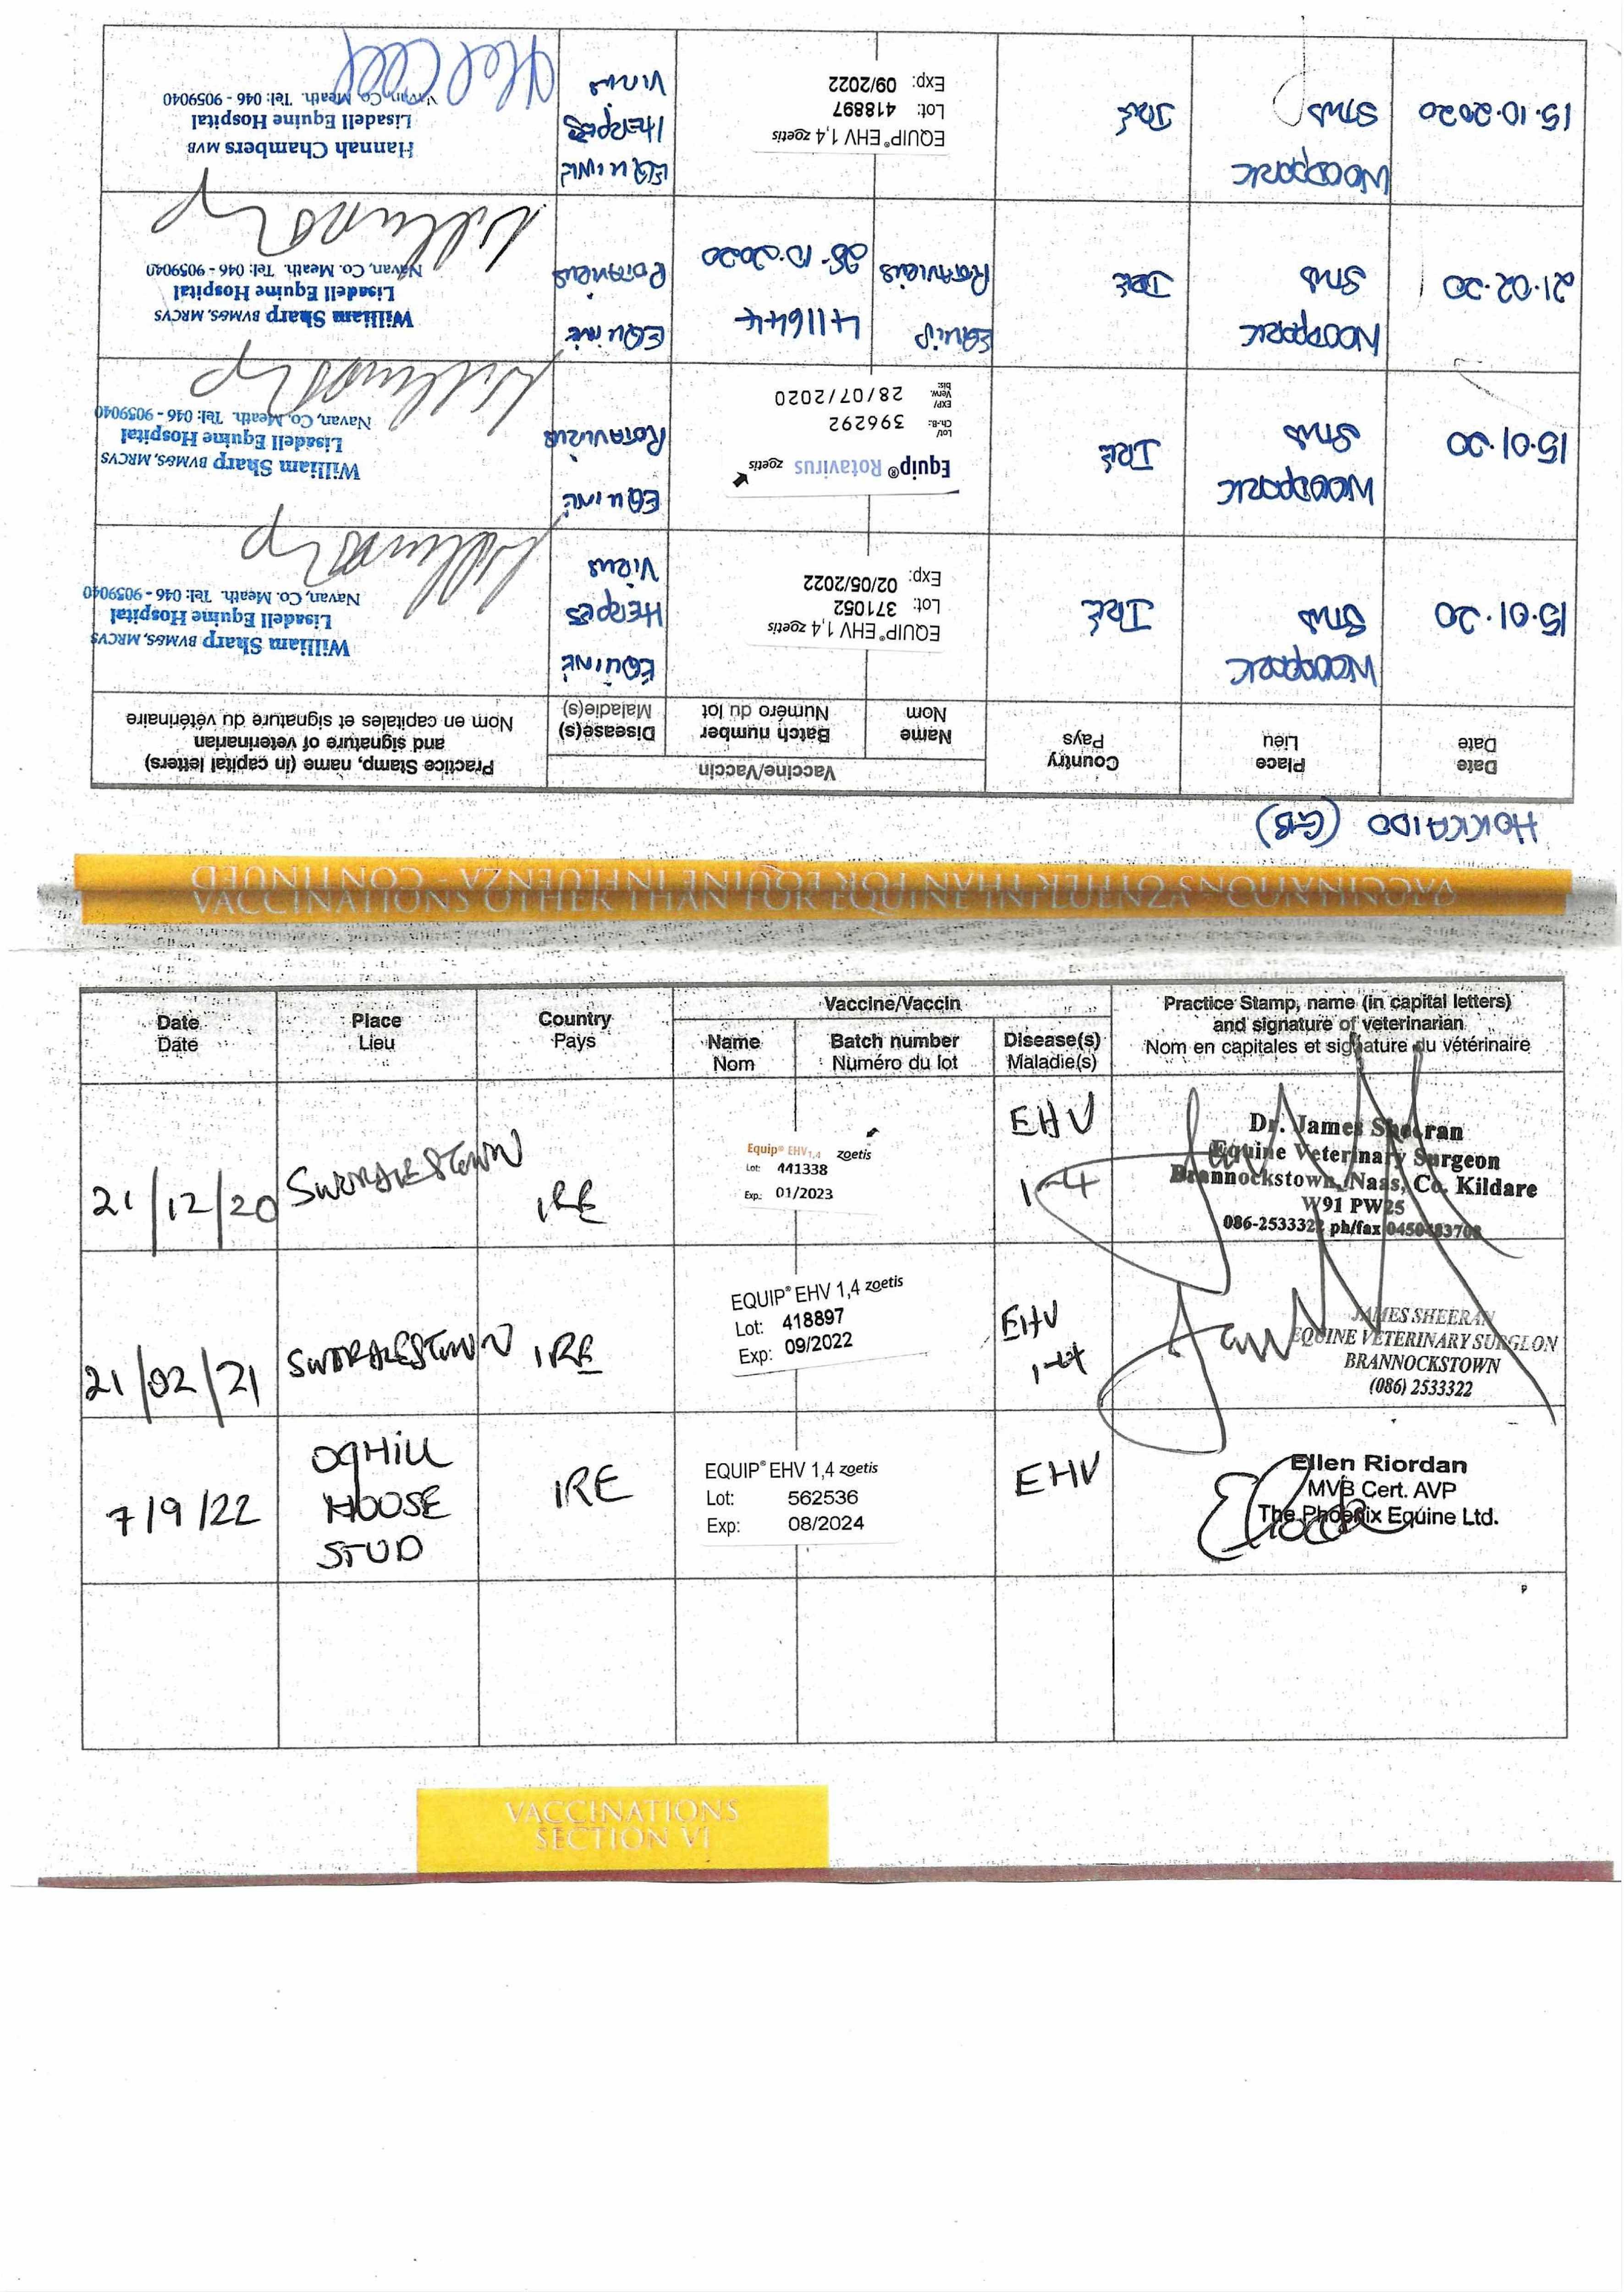 HOKKAIDO (GB)
Date
Date
Place
Lieu
Country
Pays
Vaccine/Vaccin
Name
Nom
Batch number
Numéro du lot
Disease(s)
Maladie(s)
Practice Stamp, name (in capital letters)
and signature of veterinarian
Nom en capitales et signature du vétérinaire
15.01.20
WOODPARK
STUD
IRE
EQUIP® EHV 1,4 zoetis
Lot: 371052
Exp: 02/05/2022
EQUINE
HERPES
VIRUS
William Sharp BVM&S, MRCVS
Lisadell Equine Hospital
Navan, Co. Meath. Tel: 046 - 9059040
15.01.20
WOODPARK
STUD
IRE
Equip® Rotavirus zoetis
Lot/
Ch.-B.: 396292
EXP/
Verw.
bis: 28/07/2020
EQUINE
ROTAVIRUS
William Sharp BVM&S, MRCVS
Lisadell Equine Hospital
Navan, Co. Meath. Tel: 046 - 9059040
21.02.20
WOODPARK
STUD
IRE
EQUIP
ROTAVIRUS
411644
28.10.2020
EQUINE
ROTAVIRUS
William Sharp BVM&S, MRCVS
Lisadell Equine Hospital
Navan, Co. Meath. Tel: 046 - 9059040
15.10.2020
WOODPARK
STUD
IRE
EQUIP® EHV 1,4 zoetis
Lot: 418897
Exp: 09/2022
EQUINE
HERPES
VIRUS
Hannah Chambers MVB
Lisadell Equine Hospital
Navan, Co. Meath. Tel: 046 - 9059040
VACCINATIONS OTHER THAN FOR EQUINE INFLUENZA - CONTINUED
VACCINATIONS OTHER THAN FOR EQUINE INFLUENZA - CONTINUED
Date
Date
Place
Lieu
Country
Pays
Vaccine/Vaccin
Name
Nom
Batch number
Numéro du lot
Disease(s)
Maladie(s)
Practice Stamp, name (in capital letters)
and signature of veterinarian
Nom en capitales et signature du vétérinaire
21/12/20
SWORDLESTOWN
IRE
Equip® EHV1,4 zoetis
Lot: 441338
Exp.: 01/2023
EHV
1-4
Dr. James Sheeran
Equine Veterinary Surgeon
Brannockstown, Naas, Co. Kildare
W91 PW25
086-2533322 ph/fax
21/02/21
SWORDLESTOWN
IRE
EQUIP® EHV 1,4 zoetis
Lot: 418897
Exp: 09/2022
EHV
1-4
JAMES SHEERAN
EQUINE VETERINARY SURGEON
BRANNOCKSTOWN
(086) 2533322
7/9/22
OGHILL
HOUSE
STUD
IRE
EQUIP® EHV 1,4 zoetis
Lot: 562536
Exp: 08/2024
EHV
Ellen Riordan
MVB Cert. AVP
The Phoenix Equine Ltd.
VACCINATIONS
SECTION VI